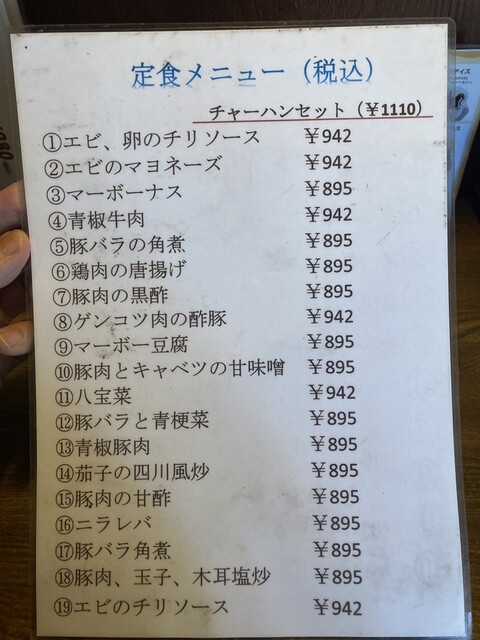 定食メニュー（税込）
チャーハンセット（￥1110）
①エビ、卵のチリソース ￥942
②エビのマヨネーズ ￥942
③マーボーナス ￥895
④青椒牛肉 ￥942
⑤豚バラの角煮 ￥895
⑥鶏肉の唐揚げ ￥895
⑦豚肉の黒酢 ￥895
⑧ゲンコツ肉の酢豚 ￥942
⑨マーボー豆腐 ￥895
⑩豚肉とキャベツの甘味噌 ￥895
⑪八宝菜 ￥942
⑫豚バラと青梗菜 ￥895
⑬青椒豚肉 ￥895
⑭茄子の四川風炒 ￥895
⑮豚肉の甘酢 ￥895
⑯ニラレバ ￥895
⑰豚バラ角煮 ￥895
⑱豚肉、玉子、木耳塩炒 ￥895
⑲エビのチリソース ￥942
アイス